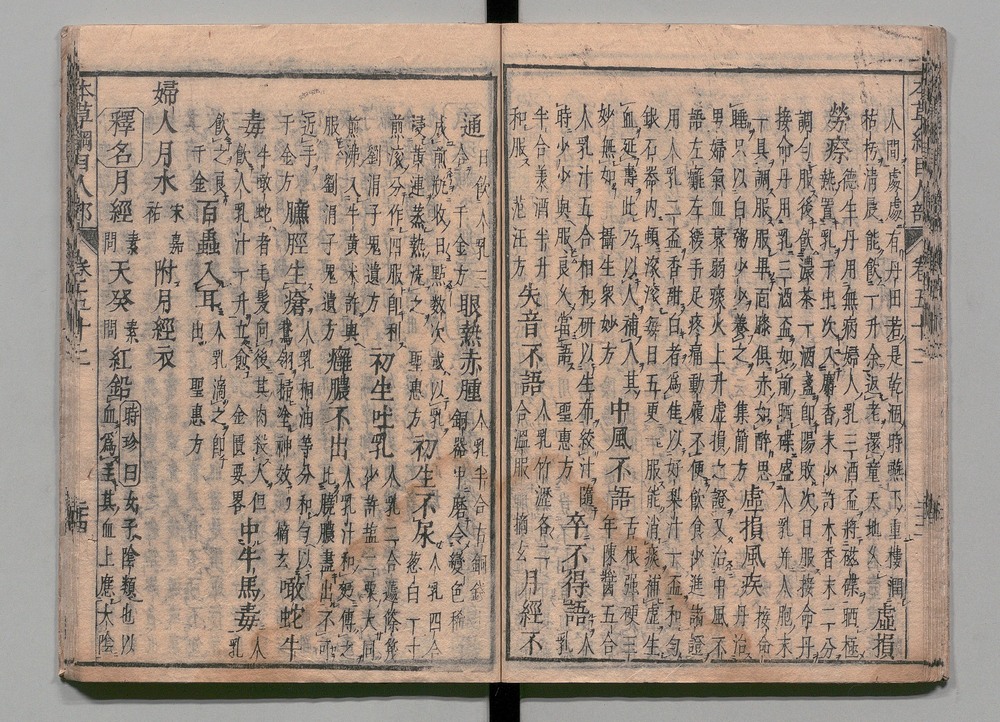 本草綱目人部 卷五十二
人間處處有丹田若是乾酒時醮下重樓潤 虛損
勞瘵 德生丹用無病婦人乳三酒盃將磁碟晒極
熱置乳于中次入麝香末少許木香末二分
調勻服後飲濃茶一酒盞即陽敗次日服接命丹
接命丹用乳三酒盃如前晒碟盛人乳并人胞末
一具調服服畢面膝俱赤如醉思
睡只以白粥少少養之 集簡方 虛損風疾 接命丹治
男婦氣血衰弱痰火上升虛損之證又治中風不
語左癱右緩手足疼痛動履不便飲食少進諸證
用人乳二盃香甜白者為佳以好梨汁一盃和勻
銀石器內頓滾滾每日五更一服能消痰補虛生
血延壽此乃以人補人其
妙無如 攝生眾妙 中風不語 舌根強硬三年陳醬五合
人乳汁五合相和研以生布絞汁隨
時少少與服良久當語 聖惠方 卒不得語 人乳
半合美酒半升
和服 范汪方 失音不語 人乳竹瀝各二合溫服 摘玄 月經不
通 日飲人乳三合 千金方 眼熱赤腫 人乳半合古銅錢
銅器中磨令變色稀
成煎瓶收日點數次或以乳
浸黃連蒸熱洗之 聖惠方 初生不尿 人乳四合
葱白一寸
煎滾分作四服即利 初生吐乳 人乳二合籧篨篾
少許鹽二粟大同
煎沸入牛黃米許與
服 劉涓子鬼遺方 癰膿不出 人乳汁和麪傅之
比曉膿盡出不可
近手 千金方 臁脛生瘡 人乳桐油等分和勻以
鵞翎掃塗神效 摘玄 啖蛇牛
毒 牛啖蛇者毛髮向後其肉殺人但
飲人乳汁一升立愈 金匱要畧 中牛馬毒 人乳
飲之良
千金 百蟲入耳 人乳滴之即
出 聖惠方
婦人月水 宋嘉祐 附月經衣
釋名 月經 素問 天癸 素問 紅鉛 時珍曰女子陰類也以
血為主其血上應太陰
本草綱目人部 卷五十二